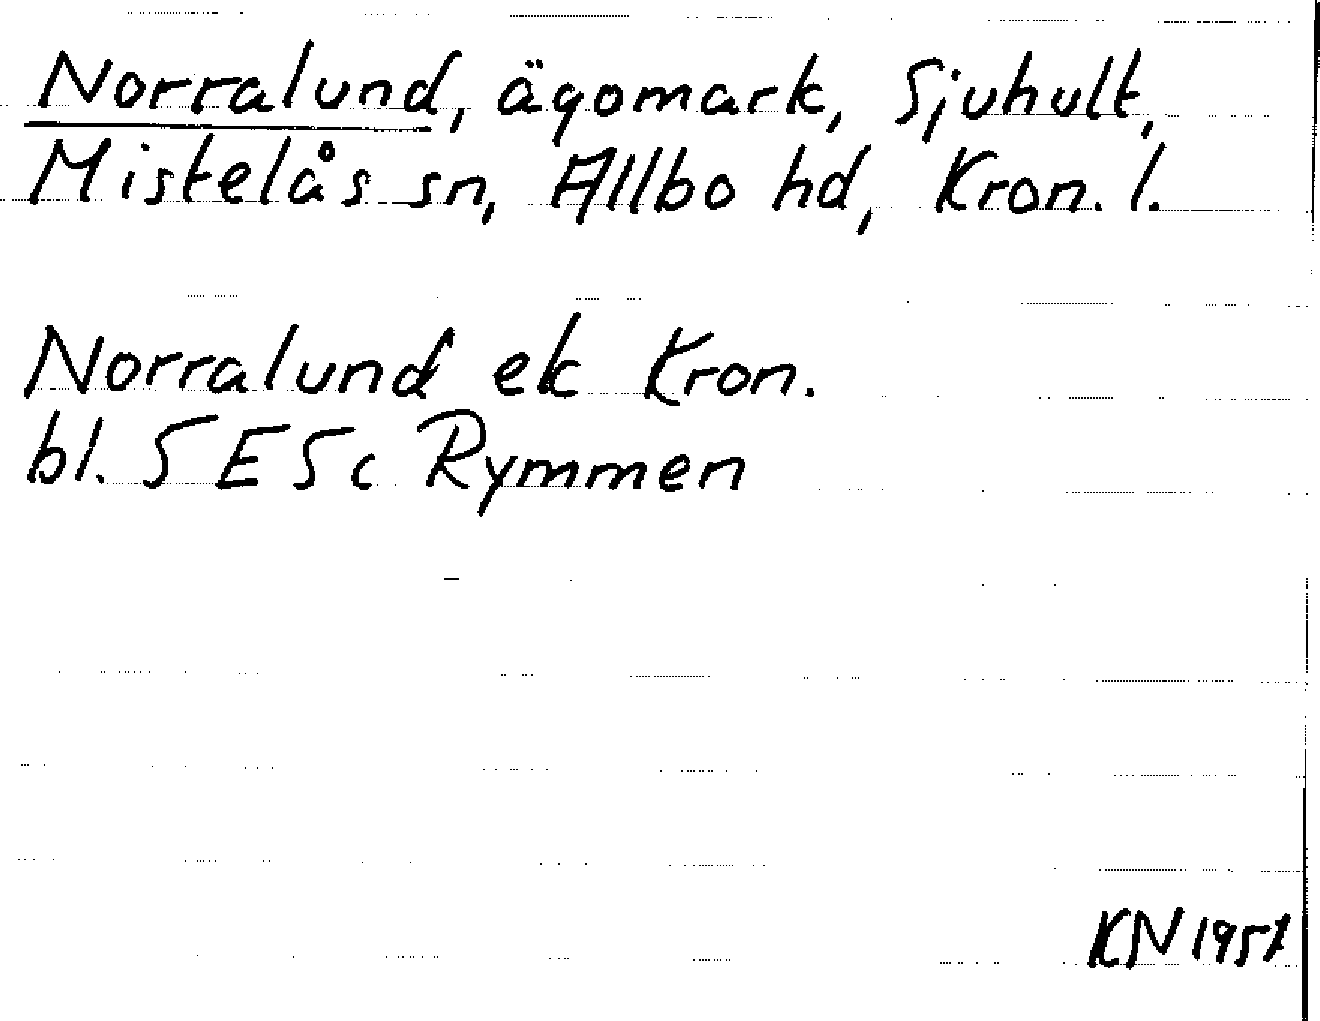 Norralund, ägomark, Sjuhult,
Mistelås sn, Allbo hd, Kron. l.
Norralund ek Kron.
bl. 5 E 5 c Rymmen
KN 1951